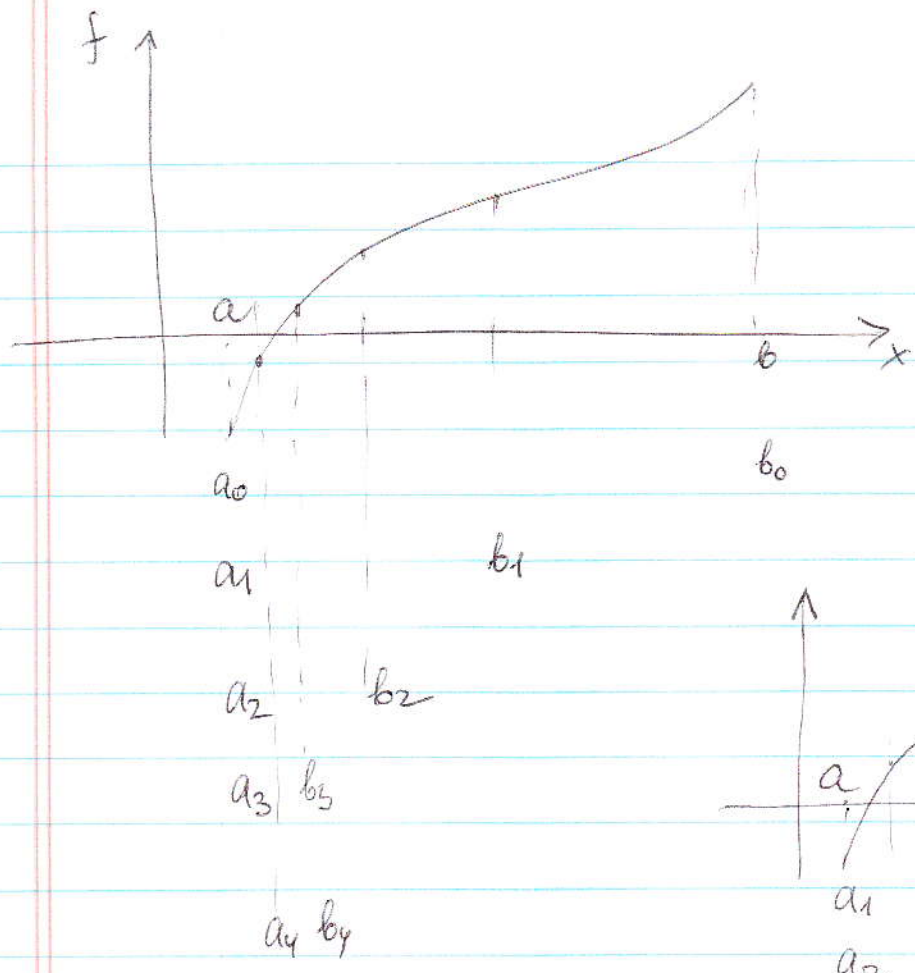 f
a
b
x
a0
b0
a1
b1
a2
b2
a3
b3
a4
b4
a
a1
a2